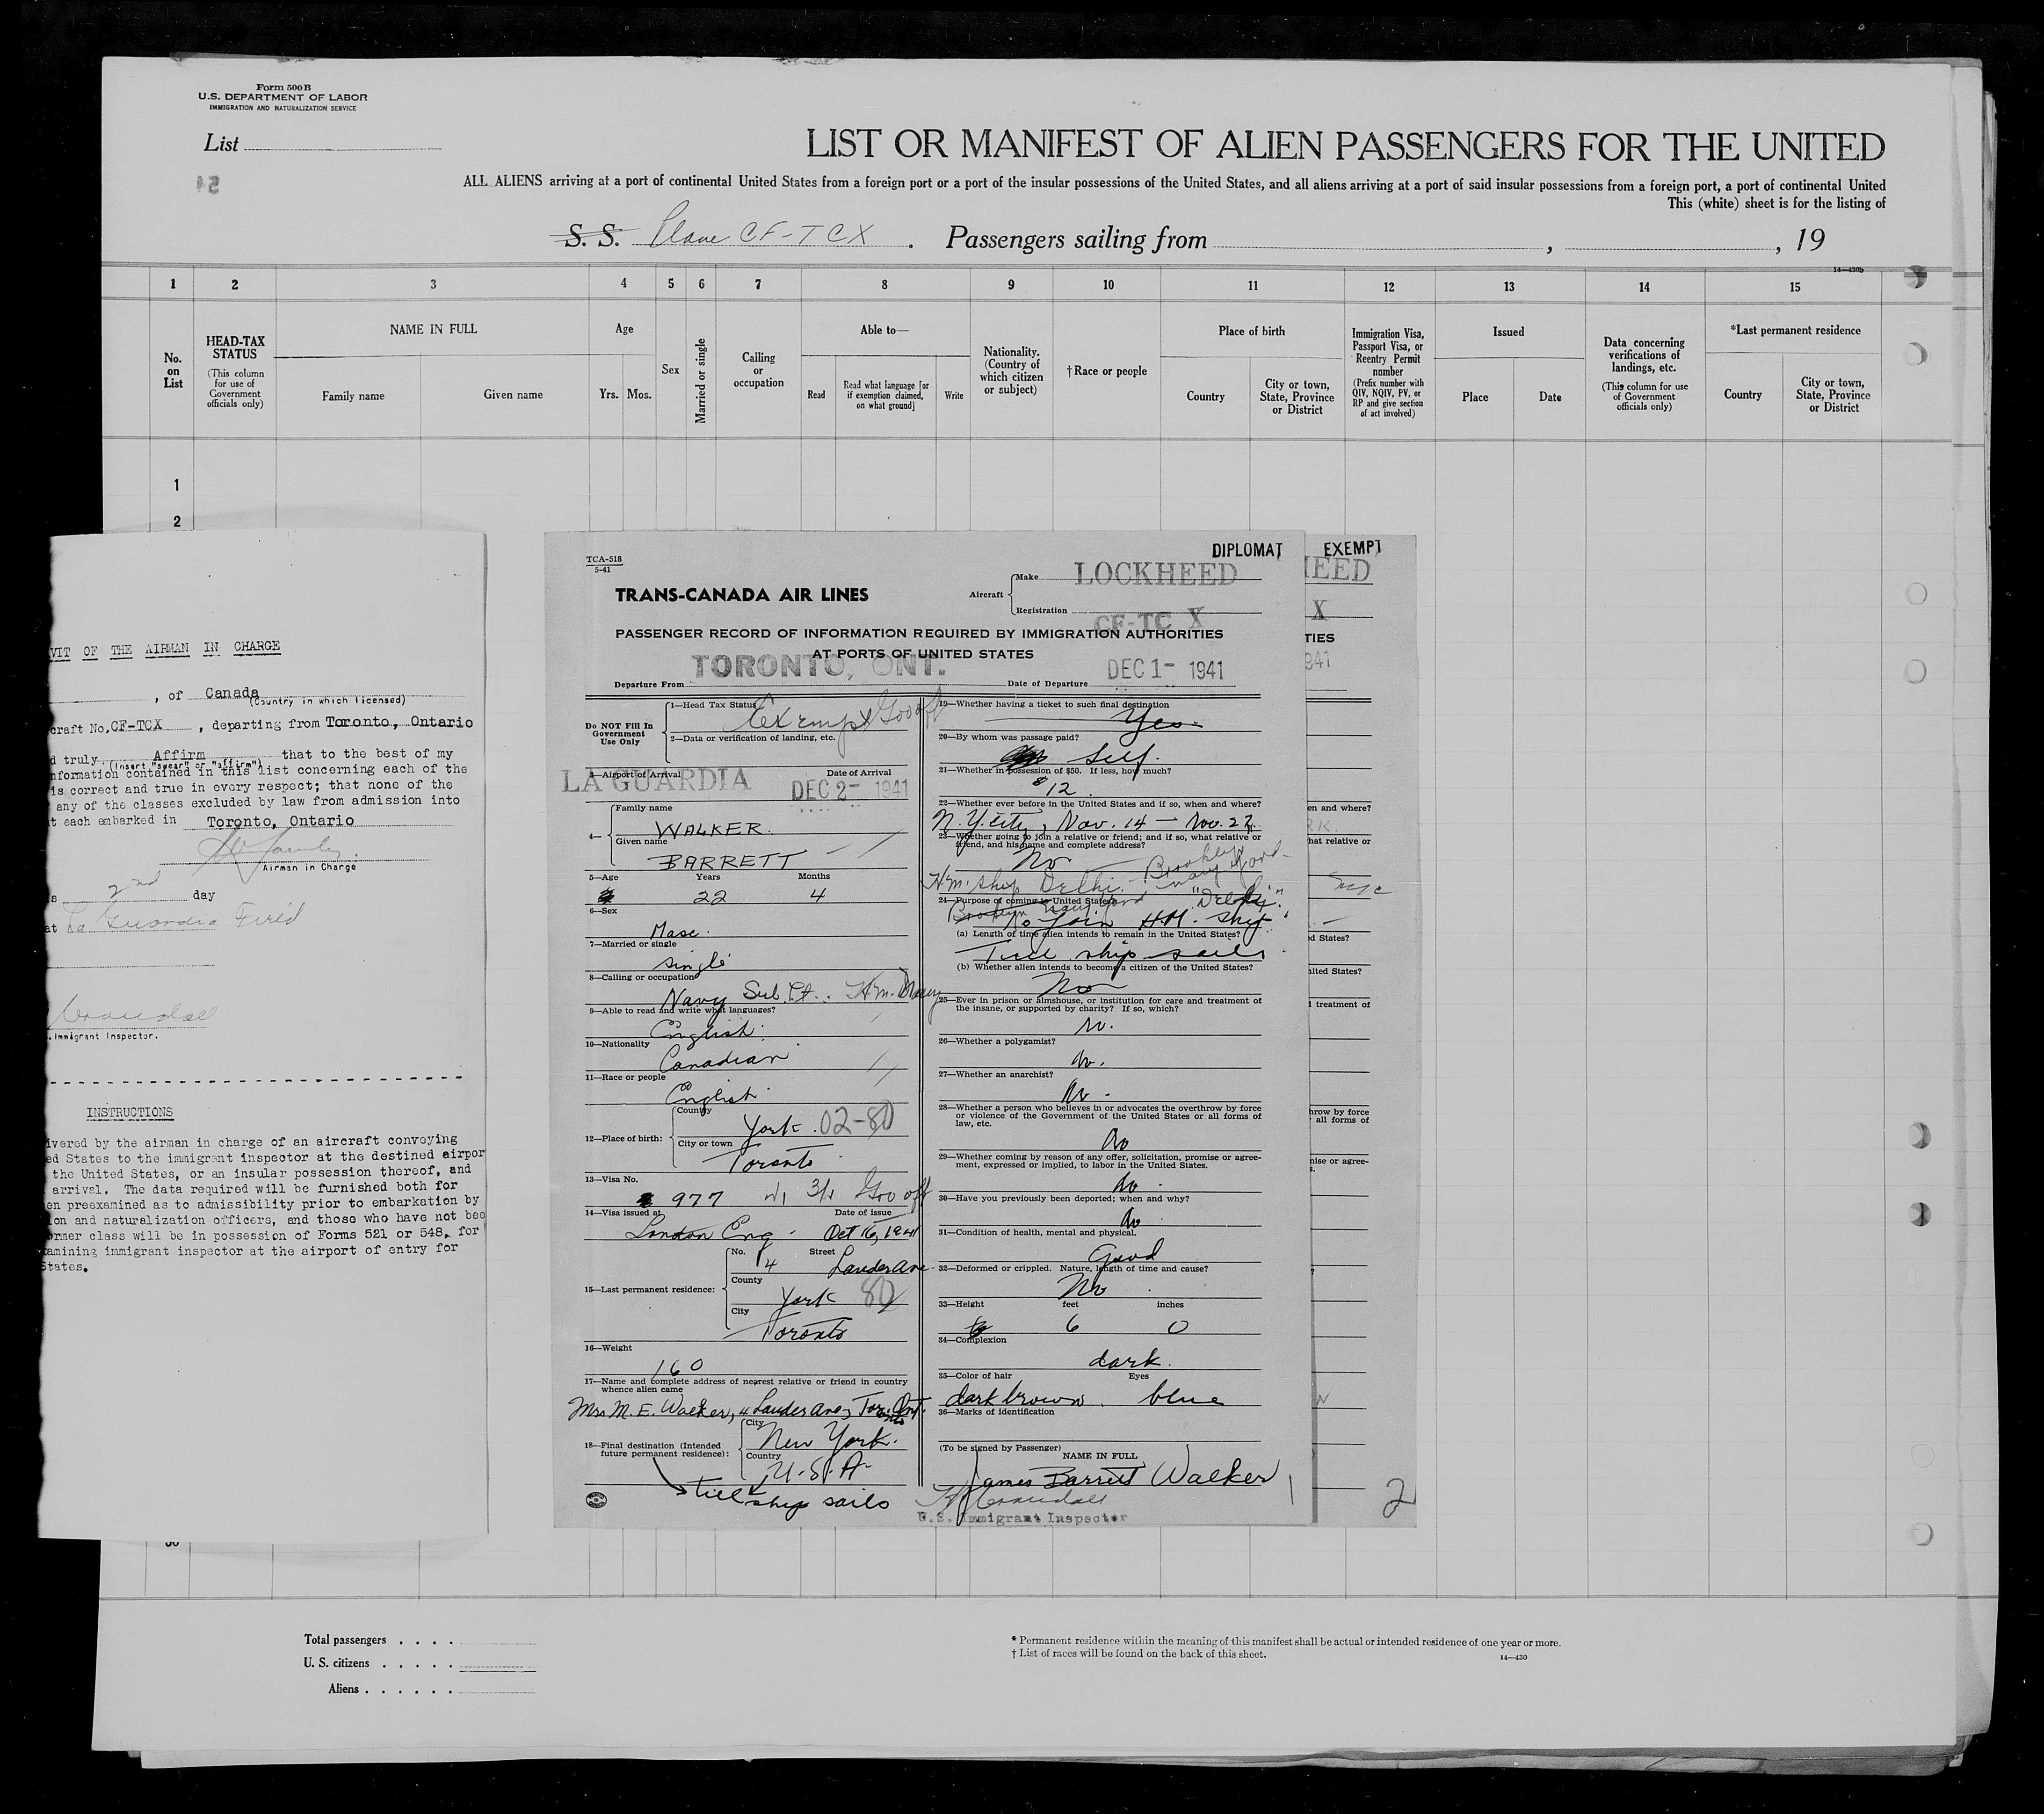 Form 500B
U.S. DEPARTMENT OF LABOR
IMMIGRATION AND NATURALIZATION SERVICE
List
LIST OR MANIFEST OF ALIEN PASSENGERS FOR THE UNITED
ALL ALIENS arriving at a port of continental United States from a foreign port or a port of the insular possessions of the United States, and all aliens arriving at a port of said insular possessions from a foreign port, a port of continental United
This (white) sheet is for the listing of
S. S. Plane CF-TCX . Passengers sailing from , , 19
14—430b
1 2 3 4 5 6 7 8 9 10 11 12 13 14 15
No. on List
HEAD-TAX STATUS
(This column for use of Government officials only)
NAME IN FULL
Family name Given name
Age
Yrs. Mos.
Sex
Married or single
Calling or occupation
Able to—
Read
Read what language [or if exemption claimed, on what ground]
Write
Nationality. (Country of which citizen or subject)
†Race or people
Place of birth
Country
City or town, State, Province or District
Immigration Visa, Passport Visa, or Reentry Permit number
(Prefix number with QIV, NQIV, PV, or RP and give section of act involved)
Issued
Place Date
Data concerning verifications of landings, etc.
(This column for use of Government officials only)
*Last permanent residence
Country
City or town, State, Province or District
1
2
30
VIT OF THE AIRMAN IN CHARGE
, of Canada
(Country in which licensed)
craft No. CF-TCX , departing from Toronto, Ontario
d truly Affirm that to the best of my
(Insert "swear" or "affirm")
nformation contained in this list concerning each of the
is correct and true in every respect; that none of the
any of the classes excluded by law from admission into
t each embarked in Toronto, Ontario
Airman in Charge
s 2nd day
at La Guardia Field
Crandall
. Immigrant Inspector.
INSTRUCTIONS
ivered by the airman in charge of an aircraft conveying
ed States to the immigrant inspector at the destined airpor
the United States, or an insular possession thereof, and
arrival. The data required will be furnished both for
en preexamined as to admissibility prior to embarkation by
ion and naturalization officers, and those who have not bee
ormer class will be in possession of Forms 521 or 548, for
amining immigrant inspector at the airport of entry for
States.
TCA-518
5-41
DIPLOMAT
TRANS-CANADA AIR LINES
Aircraft
Make LOCKHEED
Registration CF-TC X
PASSENGER RECORD OF INFORMATION REQUIRED BY IMMIGRATION AUTHORITIES
AT PORTS OF UNITED STATES
Departure From TORONTO, ONT.
Date of Departure DEC 1- 1941
Do NOT Fill In Government Use Only
1—Head Tax Status Exempt Gov off
2—Data or verification of landing, etc.
3—Airport of Arrival LA GUARDIA
Date of Arrival DEC 2- 1941
4— Family name WALKER.
Given name BARRETT
5—Age Years 22 Months 4
6—Sex Masc.
7—Married or single single
8—Calling or occupation Navy Sub. Lt. H.M. Navy
9—Able to read and write what languages? English
10—Nationality Canadian
11—Race or people English
12—Place of birth: Country York 02-80
City or town Toronto
13—Visa No. 977 3/1 Gov off
14—Visa issued at London Eng. Date of issue Oct 16, 1941
15—Last permanent residence: No. 14 Street Lauder Ave.
County York 80
City Toronto
16—Weight 160
17—Name and complete address of nearest relative or friend in country
whence alien came
Mrs M. E. Walker, 4 Lauder Ave, Toronto Ont.
18—Final destination (Intended future permanent residence): City New York.
Country U.S.A.
till ship sails
19—Whether having a ticket to such final destination
Yes.
20—By whom was passage paid?
Self.
21—Whether in possession of $50. If less, how much?
$12.
22—Whether ever before in the United States and if so, when and where?
N.Y. City, Nov. 14 — Nov. 27.
23—Whether going to join a relative or friend; and if so, what relative or
friend, and his name and complete address?
No — Brooklyn Navy Yard
H.M. Ship Delhi.
24—Purpose of coming to United States
Brooklyn Navy Yard "Delhi".
To join H.M. Ship
(a) Length of time alien intends to remain in the United States?
Till ship sails
(b) Whether alien intends to become a citizen of the United States?
No
25—Ever in prison or almshouse, or institution for care and treatment of
the insane, or supported by charity? If so, which?
No.
26—Whether a polygamist?
No.
27—Whether an anarchist?
No.
28—Whether a person who believes in or advocates the overthrow by force
or violence of the Government of the United States or all forms of
law, etc.
No
29—Whether coming by reason of any offer, solicitation, promise or agree-
ment, expressed or implied, to labor in the United States.
No.
30—Have you previously been deported; when and why?
No
31—Condition of health, mental and physical.
Good
32—Deformed or crippled. Nature, length of time and cause?
No
33—Height feet 6 inches 0
34—Complexion
dark.
35—Color of hair Eyes
dark brown. blue
36—Marks of identification
(To be signed by Passenger)
NAME IN FULL
James Barrett Walker
Crandall
U.S. Immigrant Inspector
EXEMPT
HEED
X
TIES
941
en and where?
hat relative or
ed States?
nited States?
l treatment of
hrow by force
all forms of
mise or agree-
s.
?
2
Total passengers . . . .
U. S. citizens . . . . .
Aliens . . . . . .
* Permanent residence within the meaning of this manifest shall be actual or intended residence of one year or more.
† List of races will be found on the back of this sheet.
14—430